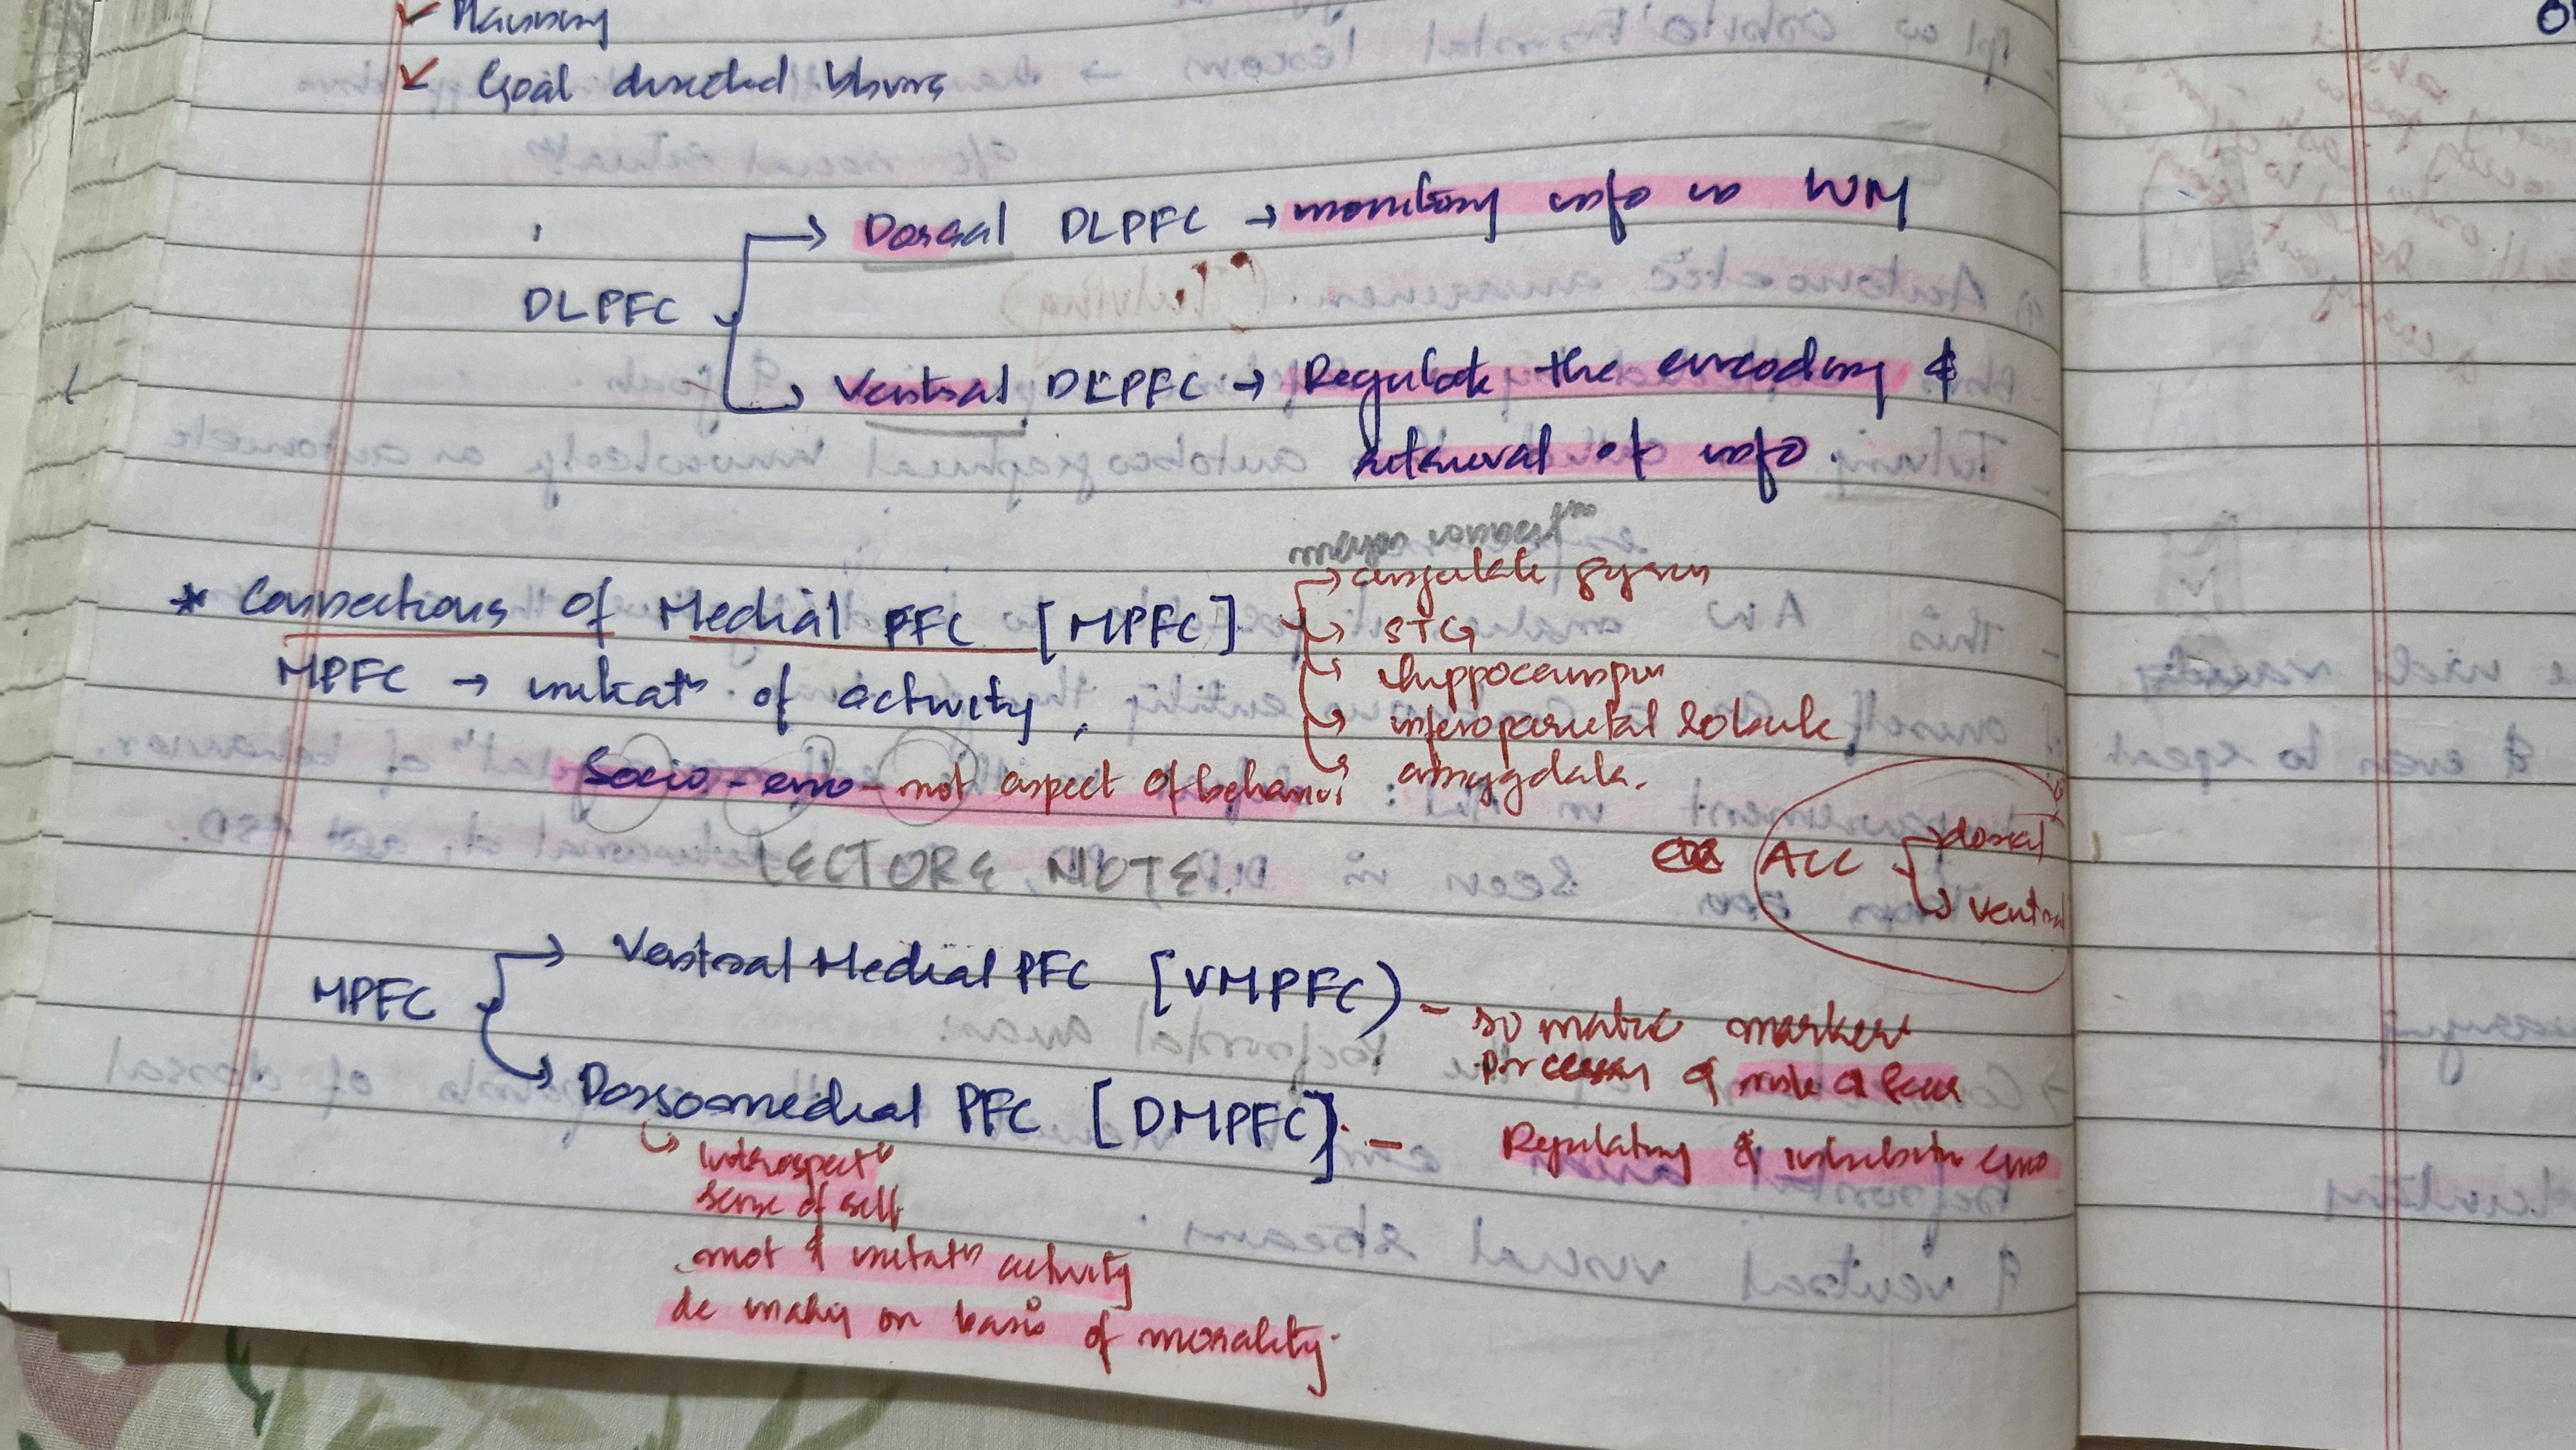 Planning
Goal directed bhvrs
Dorsal DLPFC → monitoring info in WM
DLPFC
Ventral DLPFC → Regulate the encoding &
retrieval of info
* Connections of Medial PFC [MPFC]
→ cingulate gyrus
→ STG
→ hippocampus
→ inferoparietal lobule
→ amygdala.
MPFC → initiatⁿ of activity,
Socio - emo - mot aspect of behavior
LECTORE NOTE.
ACC
→ dorsal
→ ventral
MPFC
→ Ventral Medial PFC [VMPFC) - somatic marker
processing of risk & fear
→ Dorsomedial PFC [DMPFC]. - Regulating & inhibitn emo
↳ Introspectⁿ
sense of self
mot & initatⁿ activity
de making on basis of morality.